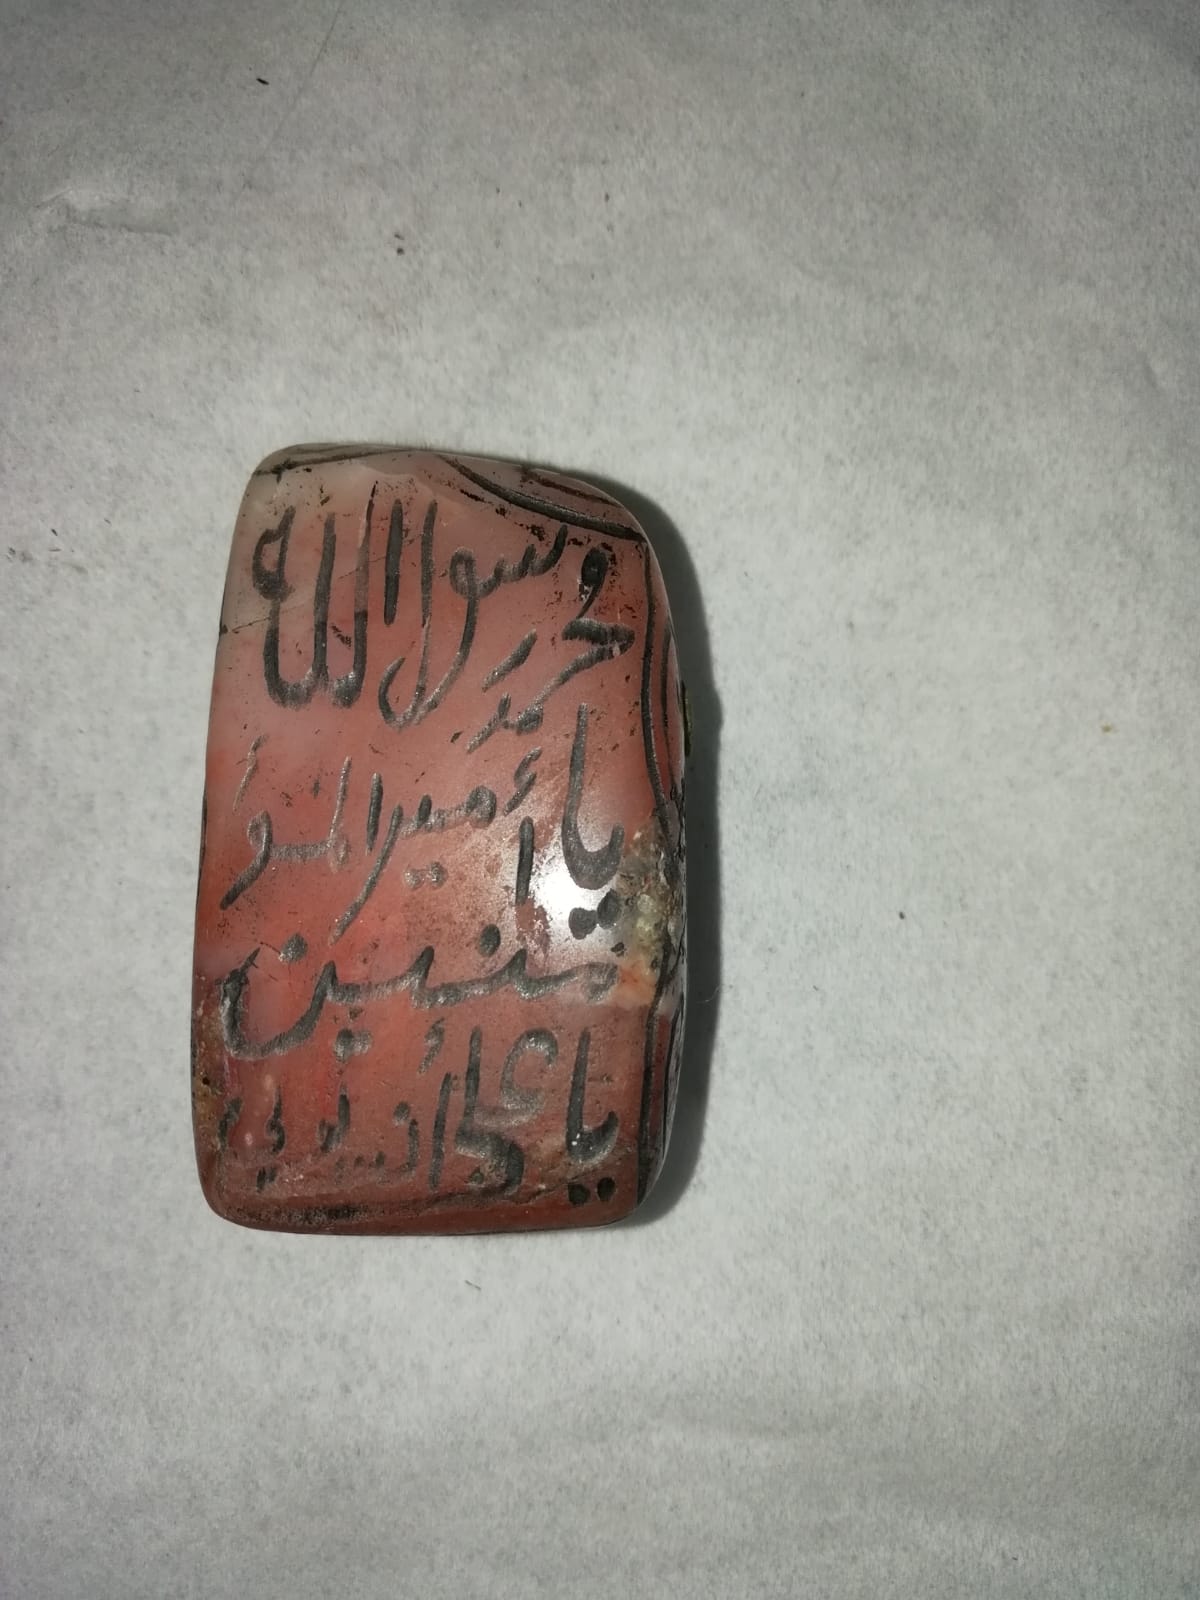 محمد رسول الله
يا أمير المؤ
منين
يا علي أ